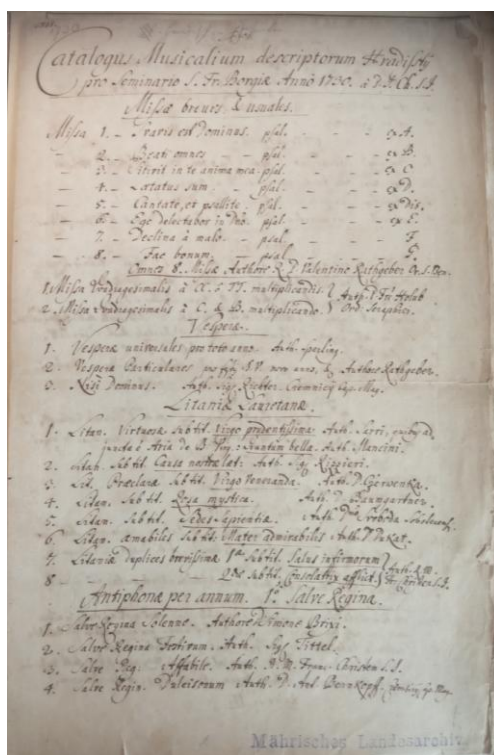 1730
Catalogus Musicalium descriptorum Hradistij
pro Seminario S. Fr. Borgiæ Anno 1730. à P. Ch. S.I.
Missæ breves & usuales.
Missa 1. – Suavis est Dominus. psal. – – ex A.
– 2. – Beati omnes – – psal. – – – ex B.
– 3. – Sitivit in te anima mea. psal. – – – ex C.
– 4. – Lætatus sum – psal. – – – ex D.
– 5. – Cantate, et psallite. psal. – – – ex Dis.
– 6. – Ego delectabor in Dno. psal. – – ex E.
– 7. – Declina à malo. – psal. – – – F.
– 8. – Fac bonum. psal. – – – G.
Omnes 8. Missæ Authore R. P. Valentino Rathgeber Or. S. Ben.
1. Missa Quadragesimalis à C. & TT. multiplicandis. Auth. P. Fr. Holub
2. Missa Quadragesimalis à C. & B. multiplicando. Ord. Seraphici.
Vesperæ.
1. Vesperæ universales pro toto anno. Auth. Sperling.
2. Vesperæ Particulares pro B. V. novo anno, & Authore Rathgeber.
3. Nisi Dominus. Auth. Sig. Richter.
Litaniæ Lauretanæ.
1. Litan. Virtuosæ Subtit. Virgo prudentissima. Auth. Sarri, ad
juncta è Aria de B. Virg. bella. Auth. Mancini.
2. Litan. Subtit. Causa nostræ læt: Auth. Sig.
3. Lit. Præclaræ Subtit. Virgo Veneranda. Auth. D. Czerwenka.
4. Litan. Subtit. Rosa mystica. Auth. D. Baumgartner.
5. Litan. Subtit. Sedes Sapientiæ. Auth. Svoboda
6. Litan. amabiles Subtit. Mater admirabilis Auth.
7. Litaniæ duplices brevissimæ 1mæ Subtit. Salus infirmorum Auth. R. P.
8 – 2dæ Subtit. Consolatrix afflict. Fr. Christen S.I.
Antiphonæ per annum. 1o. Salve Regina.
1. Salve Regina Solenne. Authore Simone Brixi.
2. Salve Regina Festivum. Auth. Sig. Tittel.
3. Salve Reg. Affabile. Auth. R. P. Franc. Christen S.I.
4. Salve Regin. Dulcisonum Auth. D. Ant. Bernkopff.
Mährisches Landesarchiv